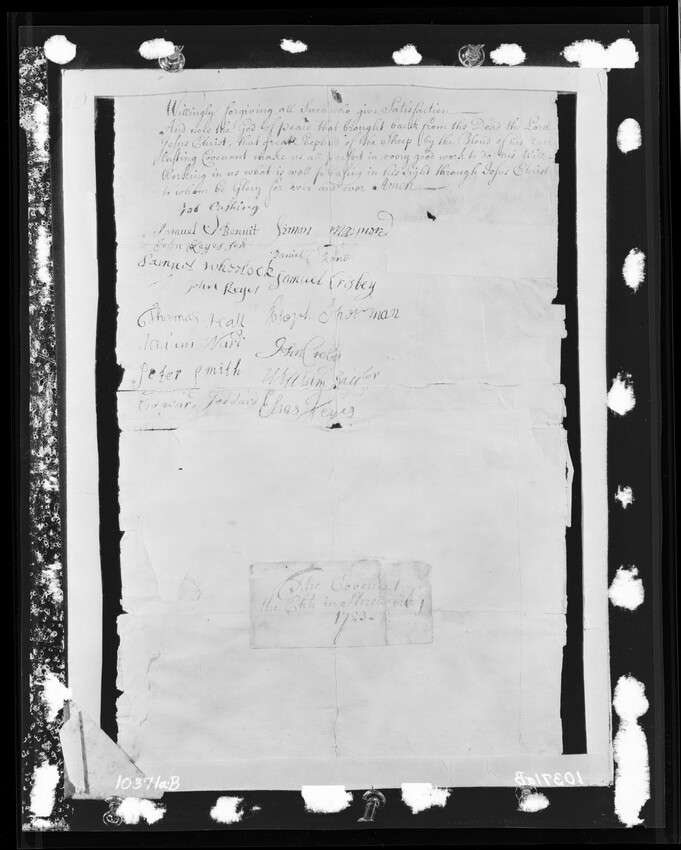 Willingly forgiving all Such who give Satisfaction
And now the God of Peace that brought back from the Dead the Lord
Jesus Christ, that great Shepherd of the Sheep (by the Blood of his Ever
lasting Covenant make us all perfect in every good work to do his Will
Working in us what is well pleasing in his Sight through Jesus Christ
to whom be Glory for ever and ever Amen
Job Cushing
Samuel Bennit Simon Maynard
John Keyes
Daniel Rand
Samuel Wheelock
John Keyes Samuel Crosby
Thomas Hall
Ward John Crosby
Peter Smith William Taylor
Edward Goddard Elias Keyes
The Covenant
the Chh in
1723
10371aB
10371aB